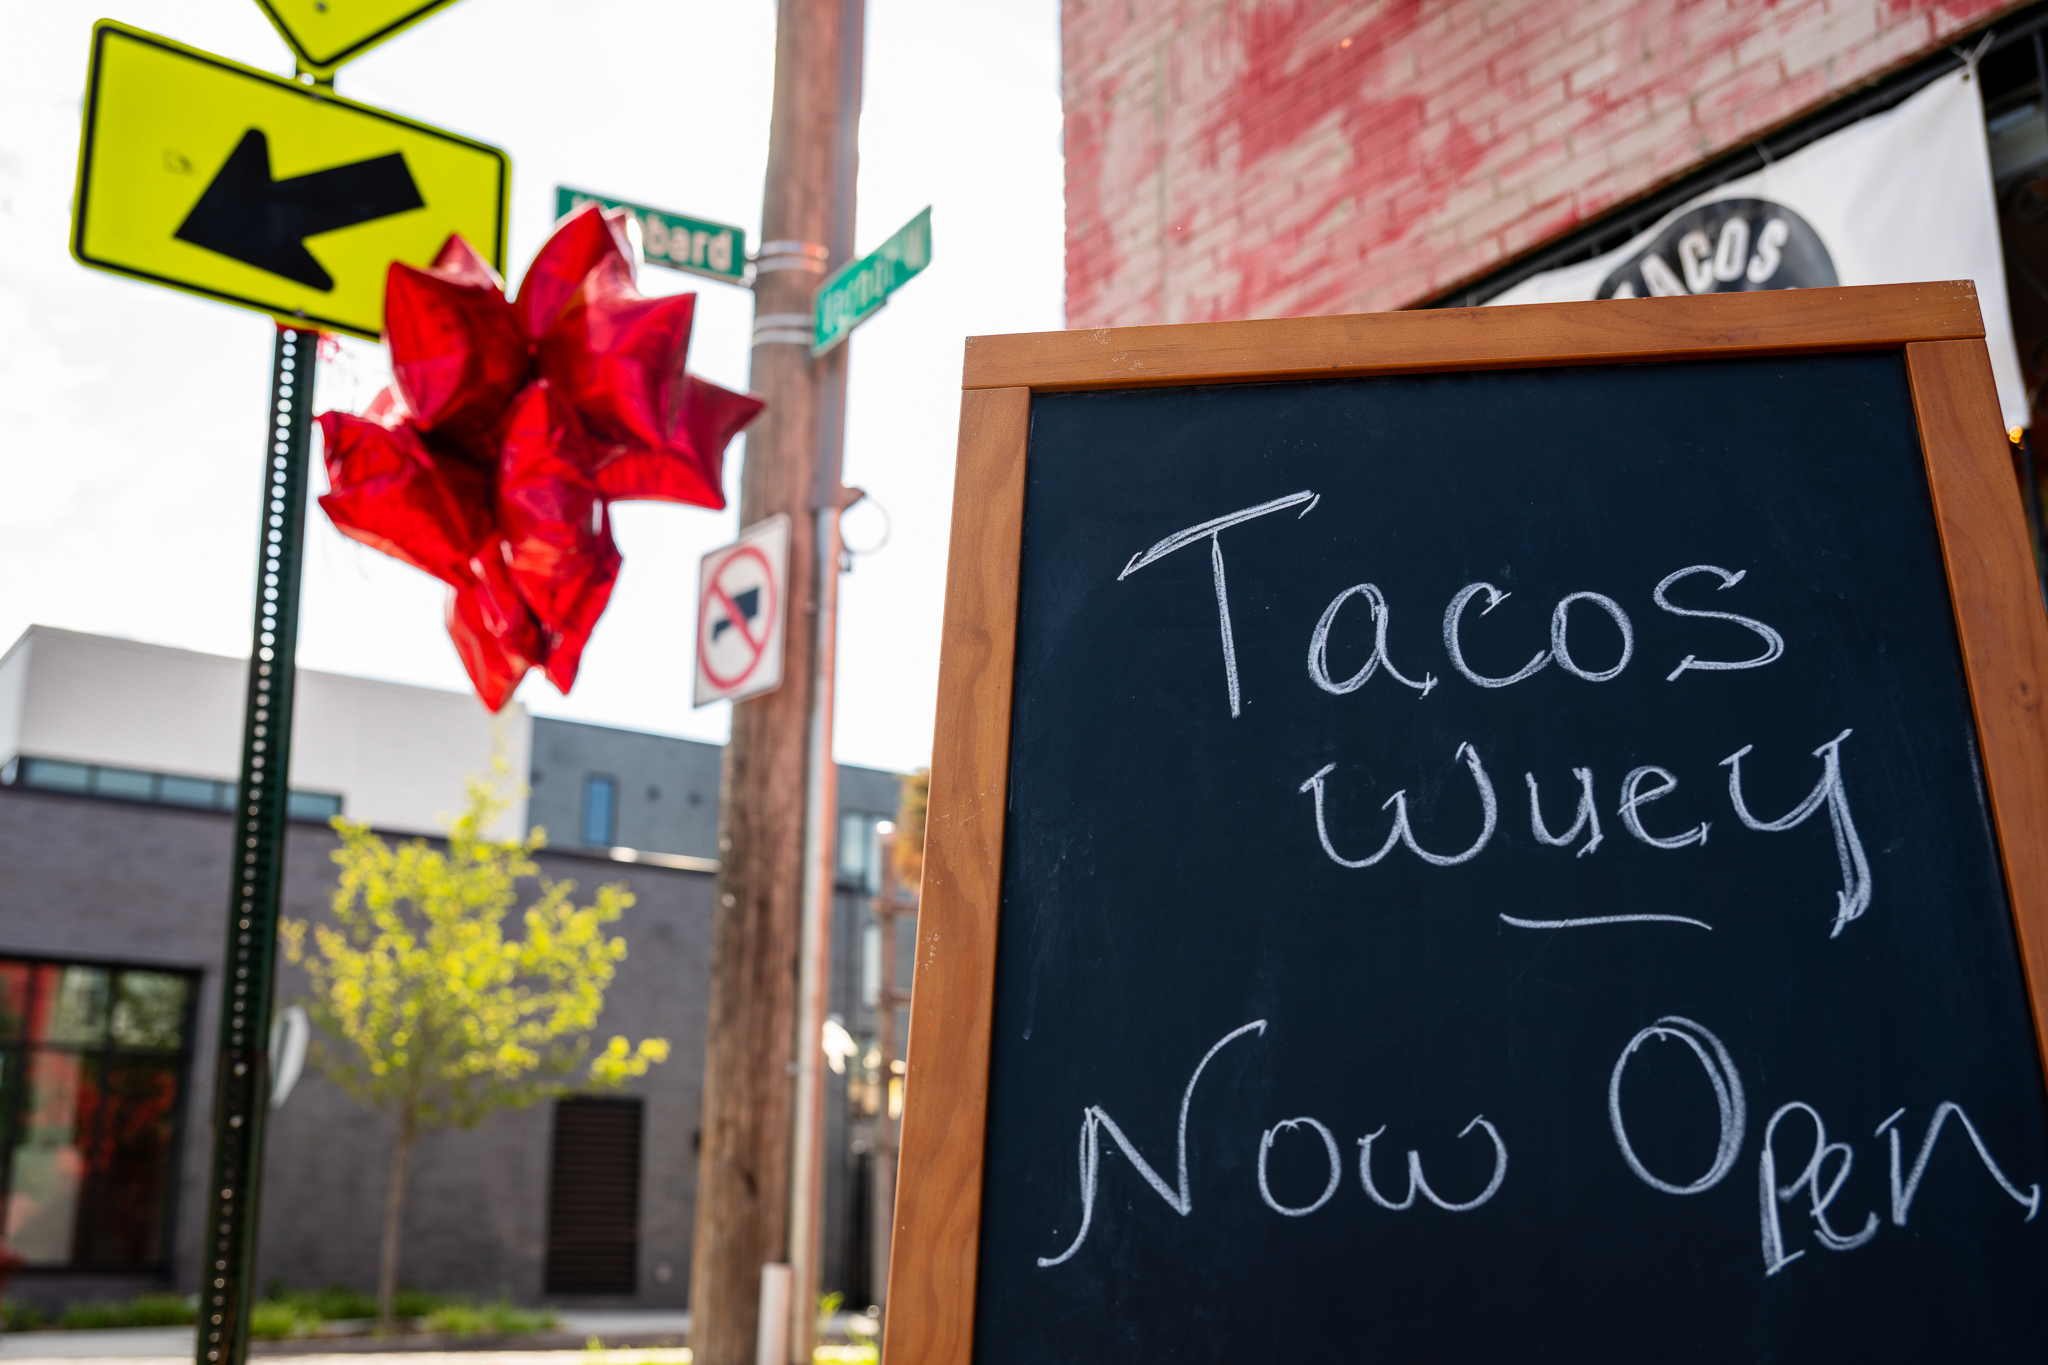 TACOS
Tacos
Wuey
Now Open